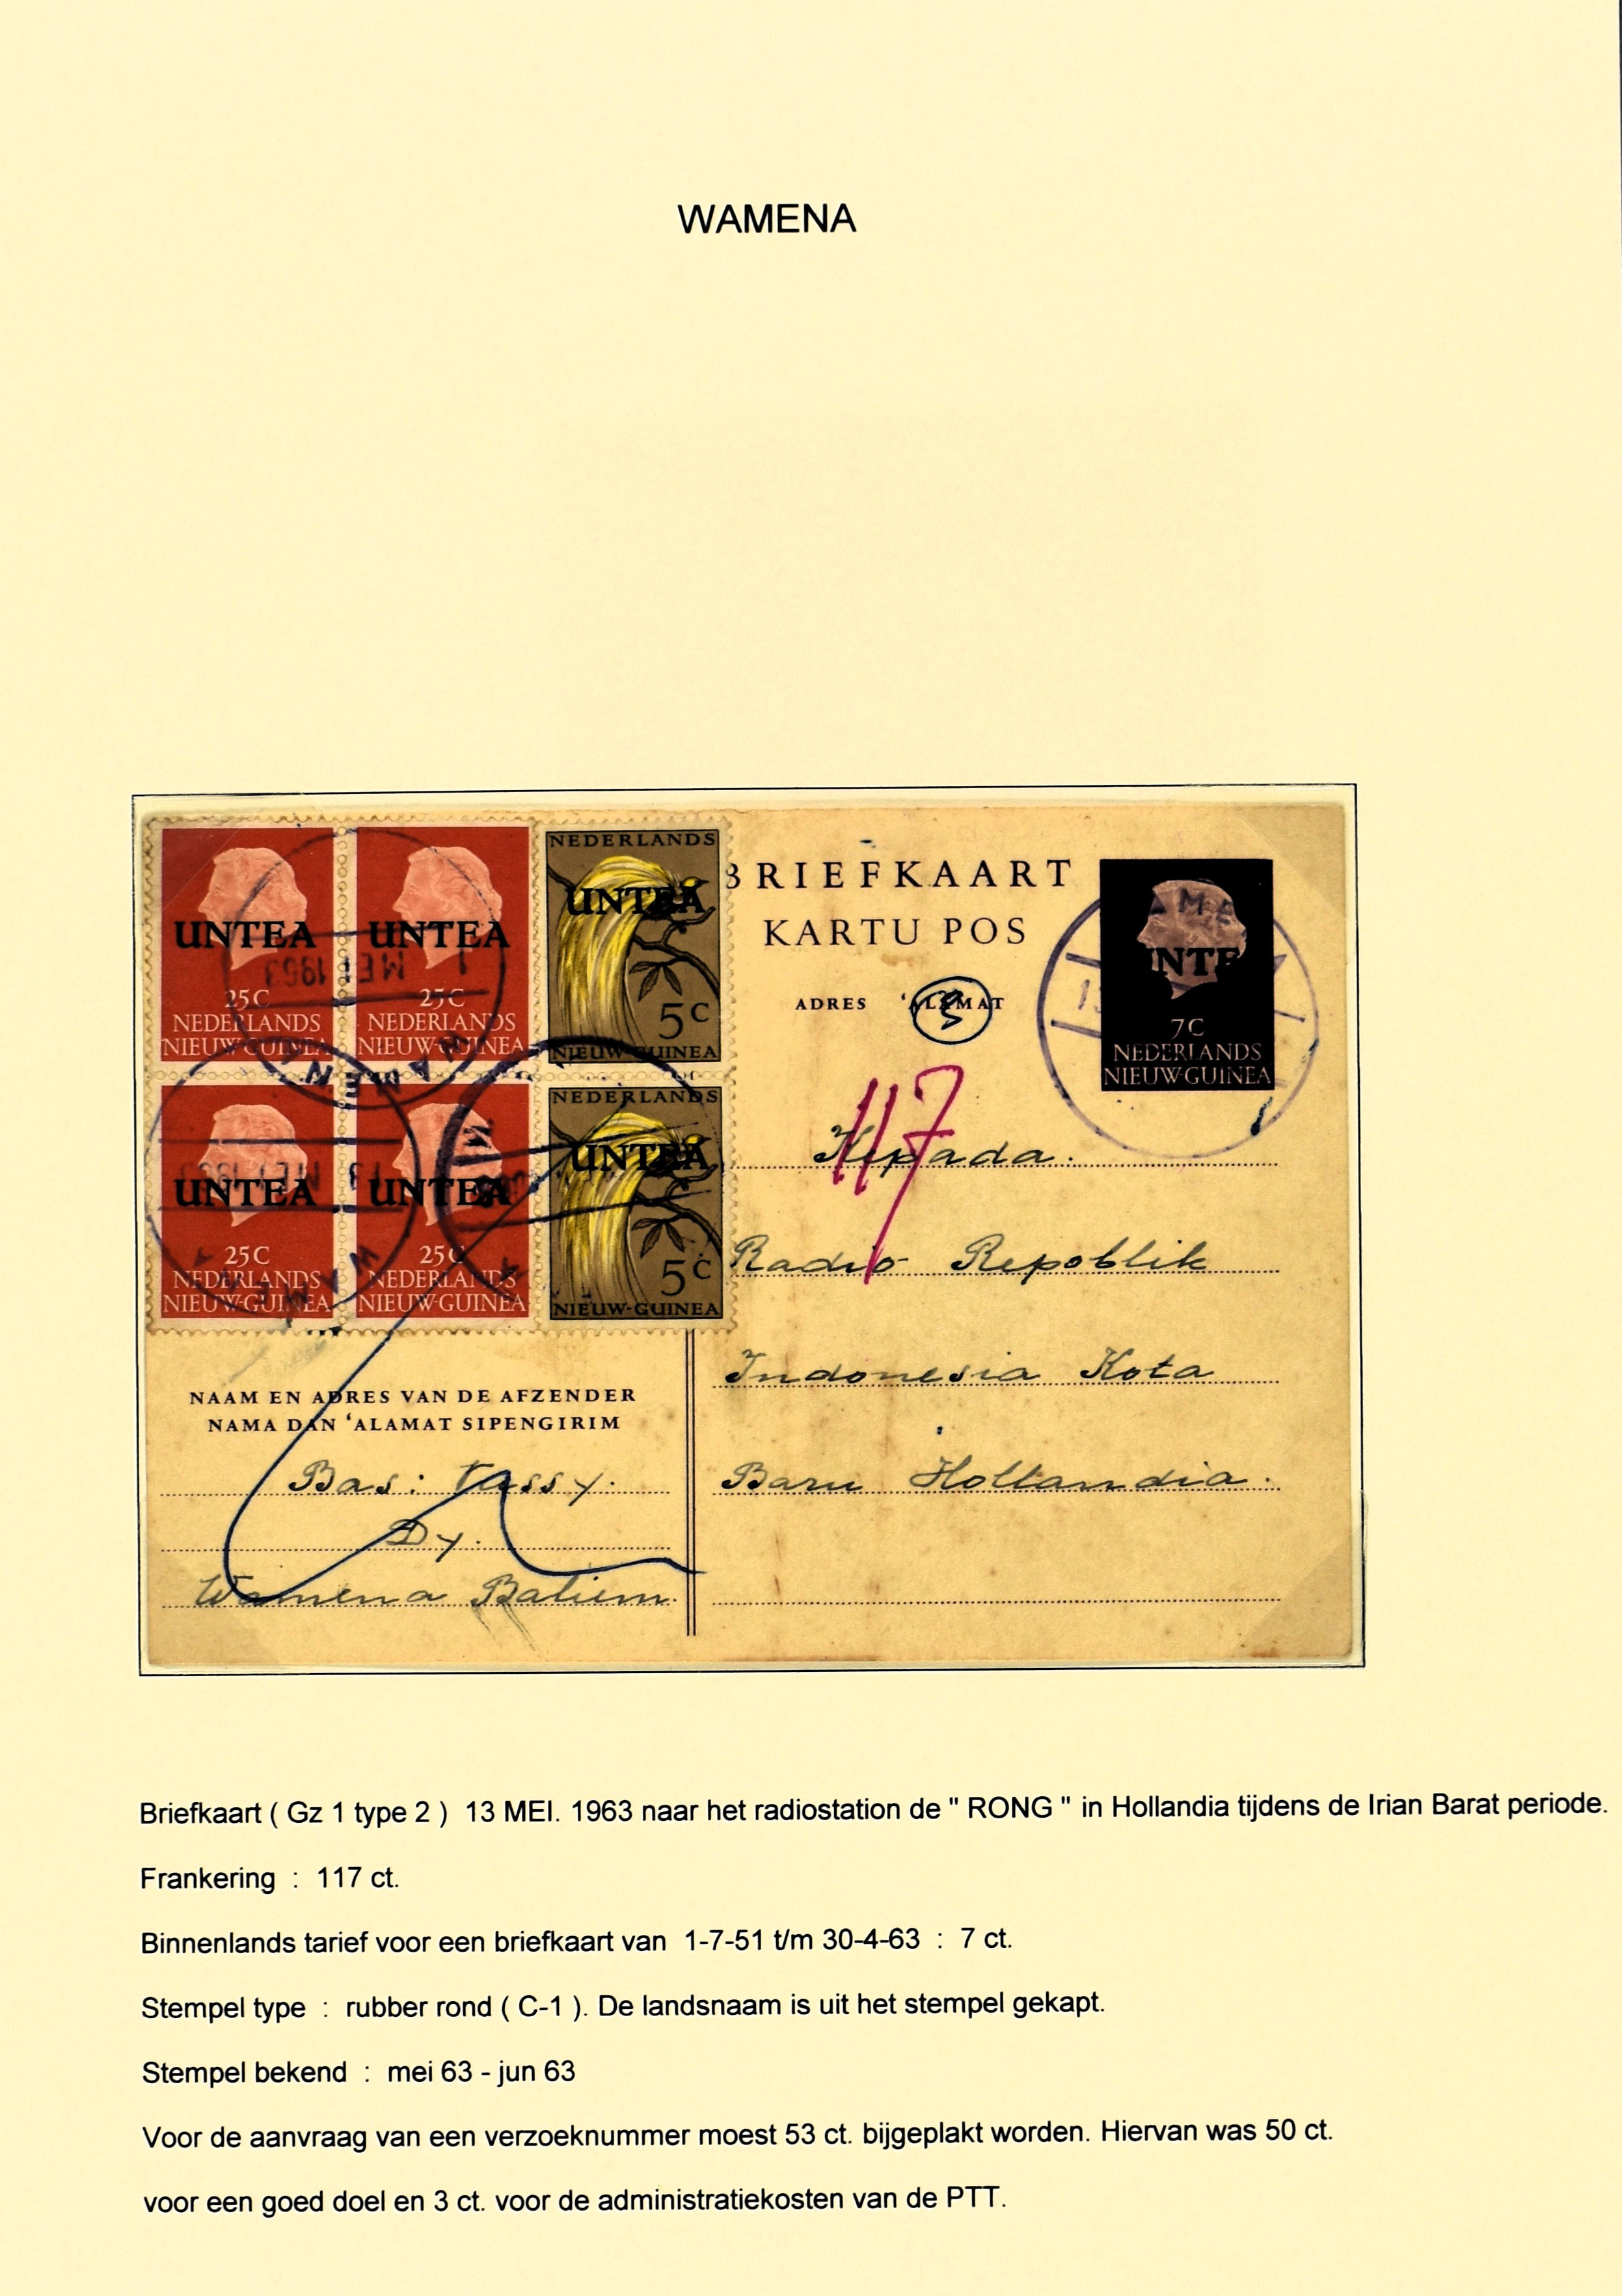 WAMENA
UNTEA
25C
NEDERLANDS
NIEUW-GUINEA
UNTEA
25C
NEDERLANDS
NIEUW-GUINEA
NEDERLANDS
UNTEA
5C
NIEUW-GUINEA
UNTEA
25C
NEDERLANDS
NIEUW-GUINEA
UNTEA
25C
NEDERLANDS
NIEUW-GUINEA
NEDERLANDS
UNTEA
5C
NIEUW-GUINEA
MEI 1963
WAMENA
13 MEI 1963
BRIEFKAART
KARTU POS
ADRES ‘ALAMAT
UNTE
7C
NEDERLANDS
NIEUW-GUINEA
117
Kepada.
Radio Repoblik
Indonesia Kota
Baru Hollandia.
NAAM EN ADRES VAN DE AFZENDER
NAMA DAN ‘ALAMAT SIPENGIRIM
Bas: Tassy.
Dy.
Wamena Baliem.
Briefkaart ( Gz 1 type 2 ) 13 MEI. 1963 naar het radiostation de " RONG " in Hollandia tijdens de Irian Barat periode.
Frankering : 117 ct.
Binnenlands tarief voor een briefkaart van 1-7-51 t/m 30-4-63 : 7 ct.
Stempel type : rubber rond ( C-1 ). De landsnaam is uit het stempel gekapt.
Stempel bekend : mei 63 - jun 63
Voor de aanvraag van een verzoeknummer moest 53 ct. bijgeplakt worden. Hiervan was 50 ct.
voor een goed doel en 3 ct. voor de administratiekosten van de PTT.